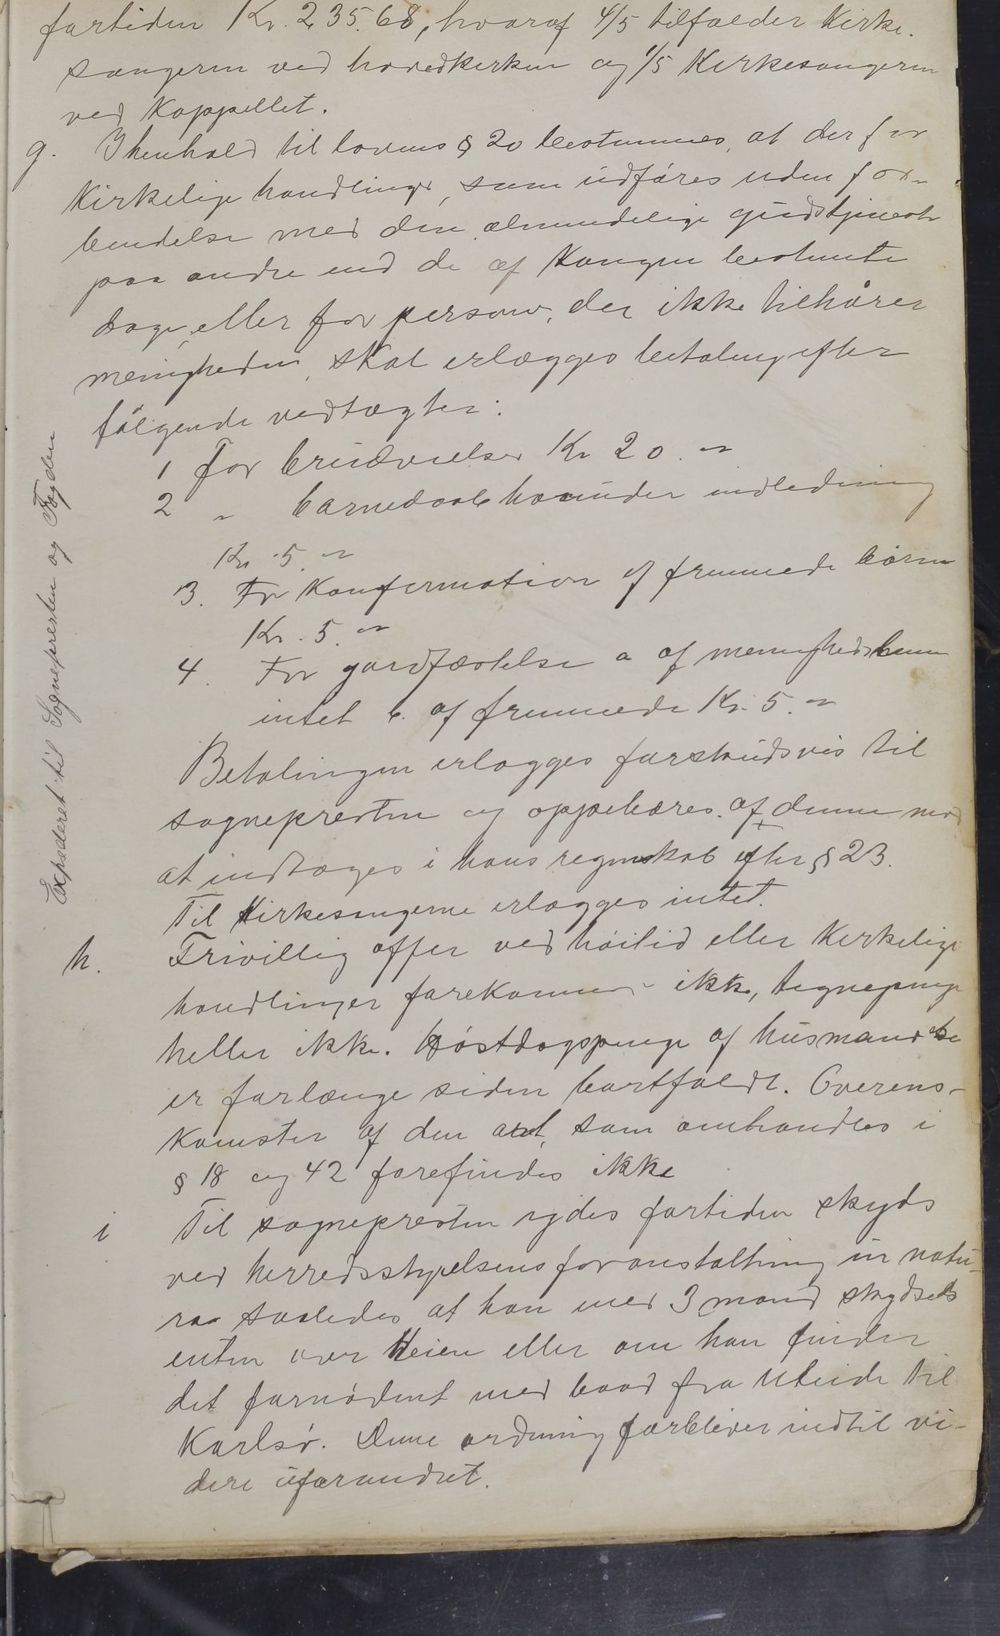 fortiden Kr. 235.68, hvoraf 4/5 tilfalder Kirke-
sangeren ved hovedkirken og 1/5 Kirkesangeren
ved Kappellet.
g. I henhold til lovens § 20 bestemmes, at der for
Kirkelige handlinger, som udføres uden for-
bindelse med den almindelige gudstjeneste
paa andre end de af Kongen bestemte
dage, eller for personer, der ikke tilhører
menigheden, skal erlægges betaling efter
følgende vedtægter:
1 For brudevielser Kr 20. "
2 " barnedaab herunder indledning
Kr. 5. "
3. For Konfirmation af fremmede børn
Kr. 5. "
4. For jordfæstelse a af menighedslemmer
intet b. af fremmede Kr. 5. "
Betalingen erlægges forskudsvis til
sognepresten og oppebæres af denne med
at indtages i hans regnskab efter § 23.
Til Kirkesangerne erlægges intet.
h. Frivillig offer ved høitid eller Kirkelige
handlinger forekommer ikke, tegnepenge
heller ikke. Høstdagspenge af husmænd
er forlænge siden bortfaldt. Overens-
komster af den art, som omhandles i
§ 18 og 42 forefindes ikke
i Til sognepresten ydes fortiden skyds
ved herredsstyrelsens foranstaltning in natu-
ra saaledes at han med 3 mand skydses
enten over Heien eller om han finder
det fornødent med baad fra til
Karlsø. Denne ordning forbliver indtil vi-
dere uforandret.
Expederet til Sognepresten og Fogden